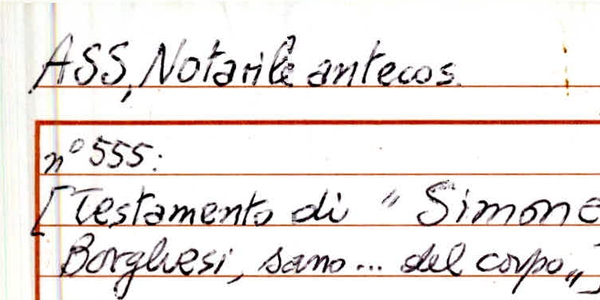 ASS, Notarile antecos.
n° 555:
[Testamento di "Simone
Borghesi, sano... del corpo"]